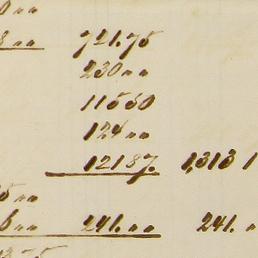 0 ""
8 "" 721.75
230 ""
115 50
124 ""
121 87. 1,313 1
5 ""
6 "" 241. "" 241. "